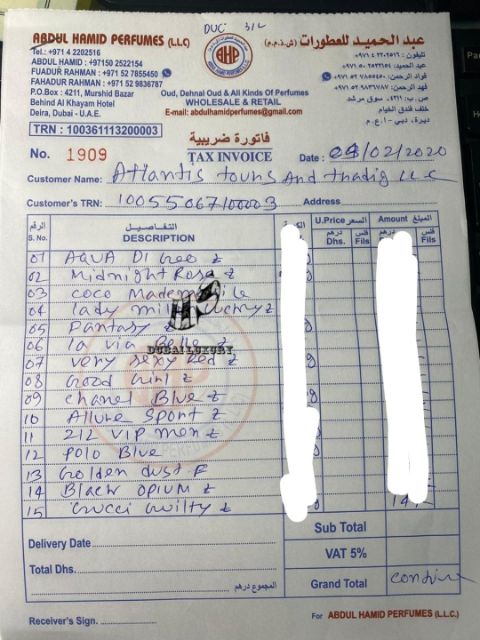 DUC 3/L
ABDUL HAMID PERFUMES (L.L.C)
عبد الحميد للعطورات (ش.ذ.م.م)
Tel.: +971 4 2202516
ABDUL HAMID : +97150 2522154
FUADUR RAHMAN : +971 52 7855450
FAHADUR RAHMAN : +971 52 9836787
P.O.Box : 4211, Murshid Bazar
Behind Al Khayam Hotel
Deira, Dubai - U.A.E.
تليفون : ٢٢٠٢٥١٦ ٤ ٩٧١+
عبد الحميد:
فواد الرحمن:
فهاد الرحمن:
ص.ب: ٤٢١١، سوق مرشد
خلف فندق الخيام
ديرة، دبي - ا.ع.م
AHP
Oud, Dehnal Oud & All Kinds Of Perfumes
WHOLESALE & RETAIL
E-mail: abdulhamidperfumes@gmail.com
TRN : 100361113200003
فاتورة ضريبية
TAX INVOICE
No. 1909
Date : 09/02/2020
Customer Name: Atlantis tours And tradig LLC
Customer's TRN: 10055067100003 Address
الرقم التفاصيل U.Price السعر Amount المبلغ
S. No. DESCRIPTION درهم Dhs. فلس Fils فلس Fils
01 AQUA DI Geo Z
02 Midnight Rose Z
03 COCO
04 lady
05 Fantasy
06 la via Belle Z
07 very sexy Red Z
08 Good Girl Z
09 Chanel Blue Z
10 Allure Sport Z
11 212 VIP men Z
12 Polo Blue
13 Golden dust
14 Black opium Z
15 Gucci Guilty Z
DUBAI LUXURY
Sub Total
VAT 5%
Grand Total
Delivery Date
Total Dhs. المجموع درهم
Receiver's Sign. For ABDUL HAMID PERFUMES (L.L.C.)